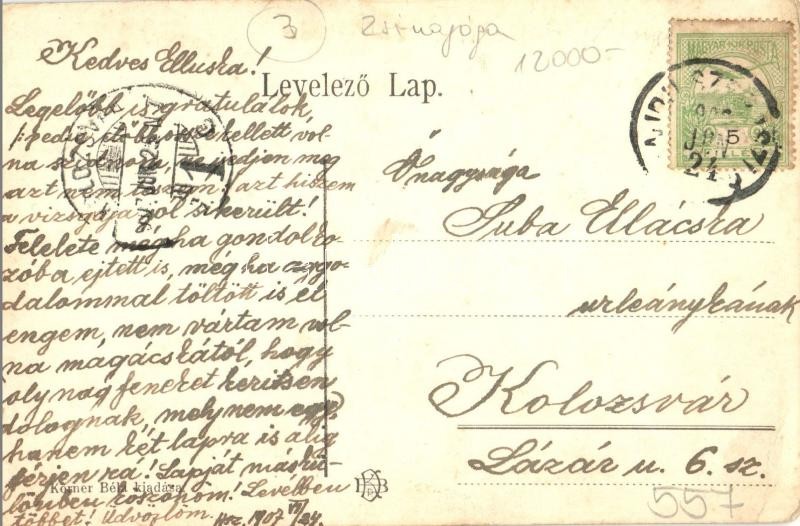 3
12000-
Kedves Elluska!
Levelező Lap.
Legelőbb is gratulálok,
pedig előbb kellett vol
na ne vedjon meg
azt nem tudom, azt hiszem
a vizsgája jól sikerült!
Felelete még ha gondolko
zóba ejtett is, még ha aggo-
dalommal töltött is el
engem, nem vártam vol-
na magácskától, hogy
oly nagy feneket kerítsen
dolognak, mely nem egy
hanem két lapra is alig
férjen rá! Lapját máskü-
lönben köszönöm! Levélben
többet! Üdvözlöm
1907 VI/24.
Őnagysága
Suba Ellácska
urleánykának
Kolozsvár
Lázár u. 6. sz.
MAGYAR KIR. POSTA
5
907
JUN
24
KOLOZSVÁR
Körner Béla kiadása
557